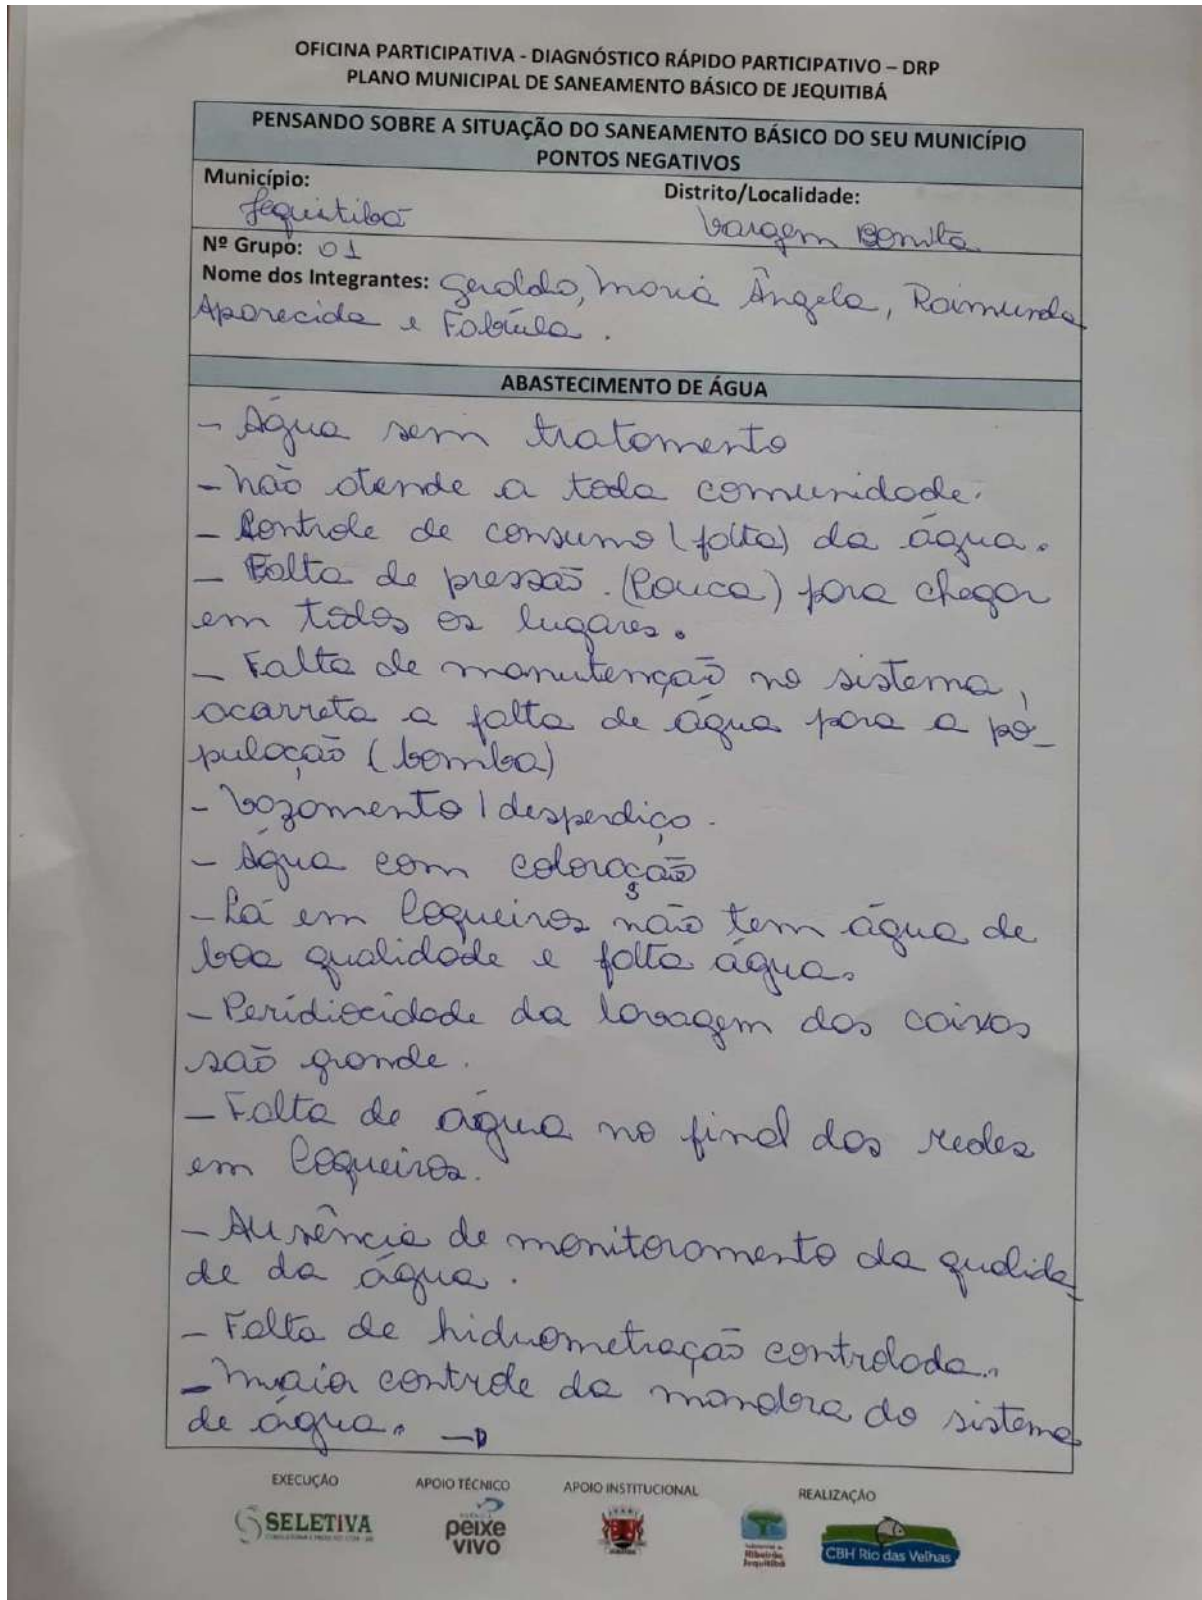 OFICINA PARTICIPATIVA - DIAGNÓSTICO RÁPIDO PARTICIPATIVO – DRP
PLANO MUNICIPAL DE SANEAMENTO BÁSICO DE JEQUITIBÁ
PENSANDO SOBRE A SITUAÇÃO DO SANEAMENTO BÁSICO DO SEU MUNICÍPIO
PONTOS NEGATIVOS
Município:
Distrito/Localidade:
Jequitibá
Vargem Bonita
Nº Grupo: 01
Nome dos Integrantes: Geraldo, Maria Ângela, Raimunda
Aparecida e Fabíula.
ABASTECIMENTO DE ÁGUA
- Água sem tratamento
- não atende a toda comunidade.
- Controle de consumo (falta) da água.
- Falta de pressão. (Pouca) para chegar
em todos os lugares.
- Falta de manutenção no sistema,
acarreta a falta de água para a po-
pulação (bomba)
- Vazamento / desperdiço.
- Água com coloração
- Lá em Coqueiros não tem água de
boa qualidade e falta água.
- Peridiocidade da lavagem das caixas
são grande.
- Falta de água no final das redes
em Coqueiros.
- Ausência de monitoramento da qualida
de da água.
- Falta de hidrometração controlada.
- maior controle da manobra do sistema
de água.
EXECUÇÃO
APOIO TÉCNICO
APOIO INSTITUCIONAL
REALIZAÇÃO
SELETIVA
peixe
vivo
Ribeirão
Jequitibá
CBH Rio das Velhas